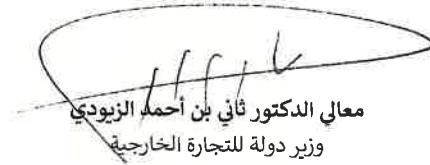 معالي الدكتور ثاني بن أحمد الزيودي
وزير دولة للتجارة الخارجية